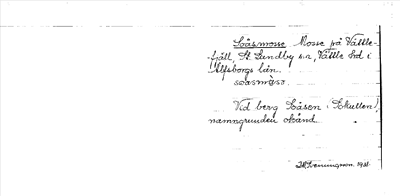 Soåsmosse. Mosse på Vättle-
fjäll, St. Lundby sn, Vättle hd i
Älfsborgs län.
soåsmåsa.
Vid berg Soåsen (Skulten),
namngrunden okänd.
1931.